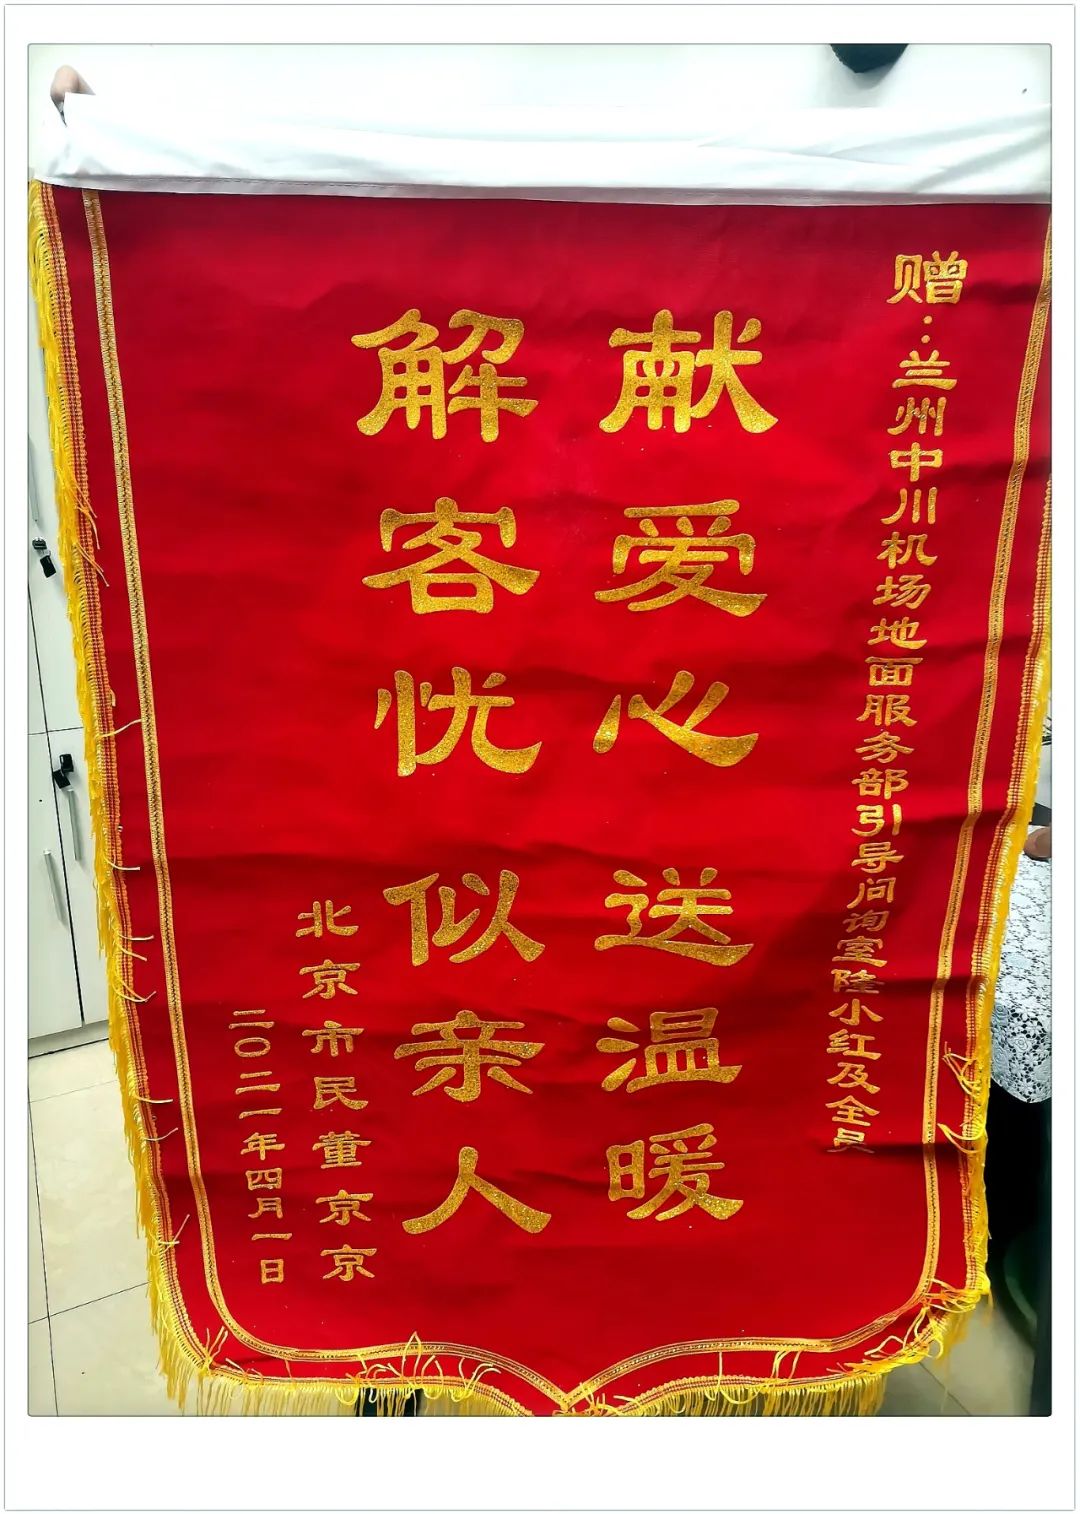 赠:兰州中川机场地面服务部引导问询室隆小红及全员
献爱心送温暖
解客忧似亲人
北京市民董京京
二〇二一年四月一日